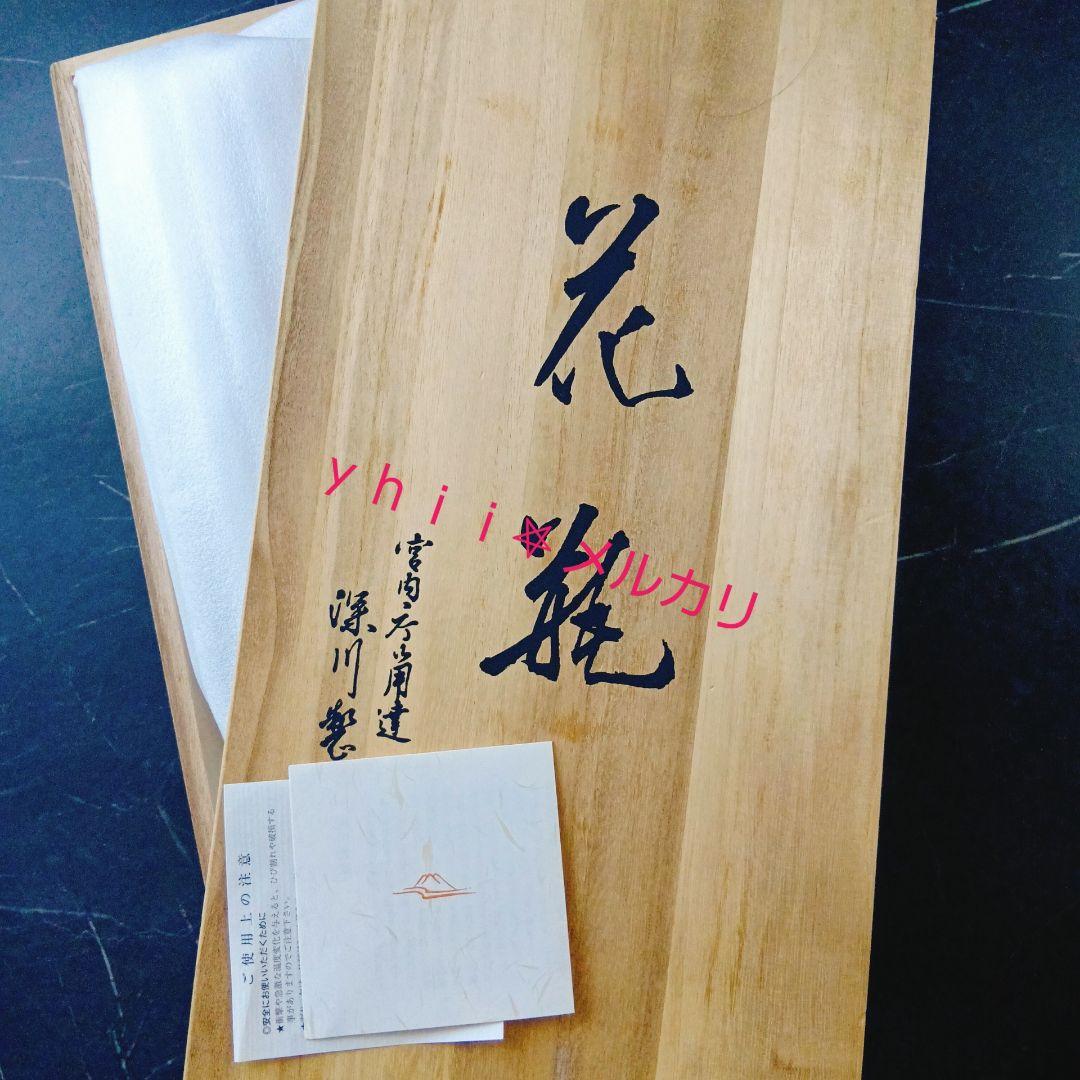 花瓶
宮内庁御用達
深川製
yhii☆メルカリ
ご使用上の注意
◎安全にお使いいただくために
★衝撃や急激な温度変化を与えると、ひび割れや破損する
事がありますのでご注意下さい。